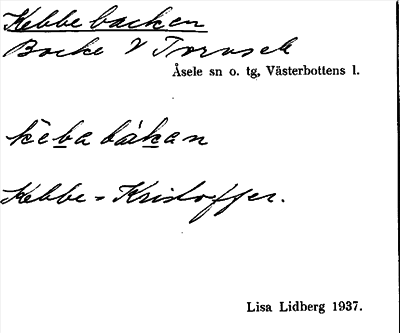 Kebbebacken
Backe V Torvsel
Åsele sn o. tg, Västerbottens l.
kèba bákan
Kebbe = Kristoffer.
Lisa Lidberg 1937.